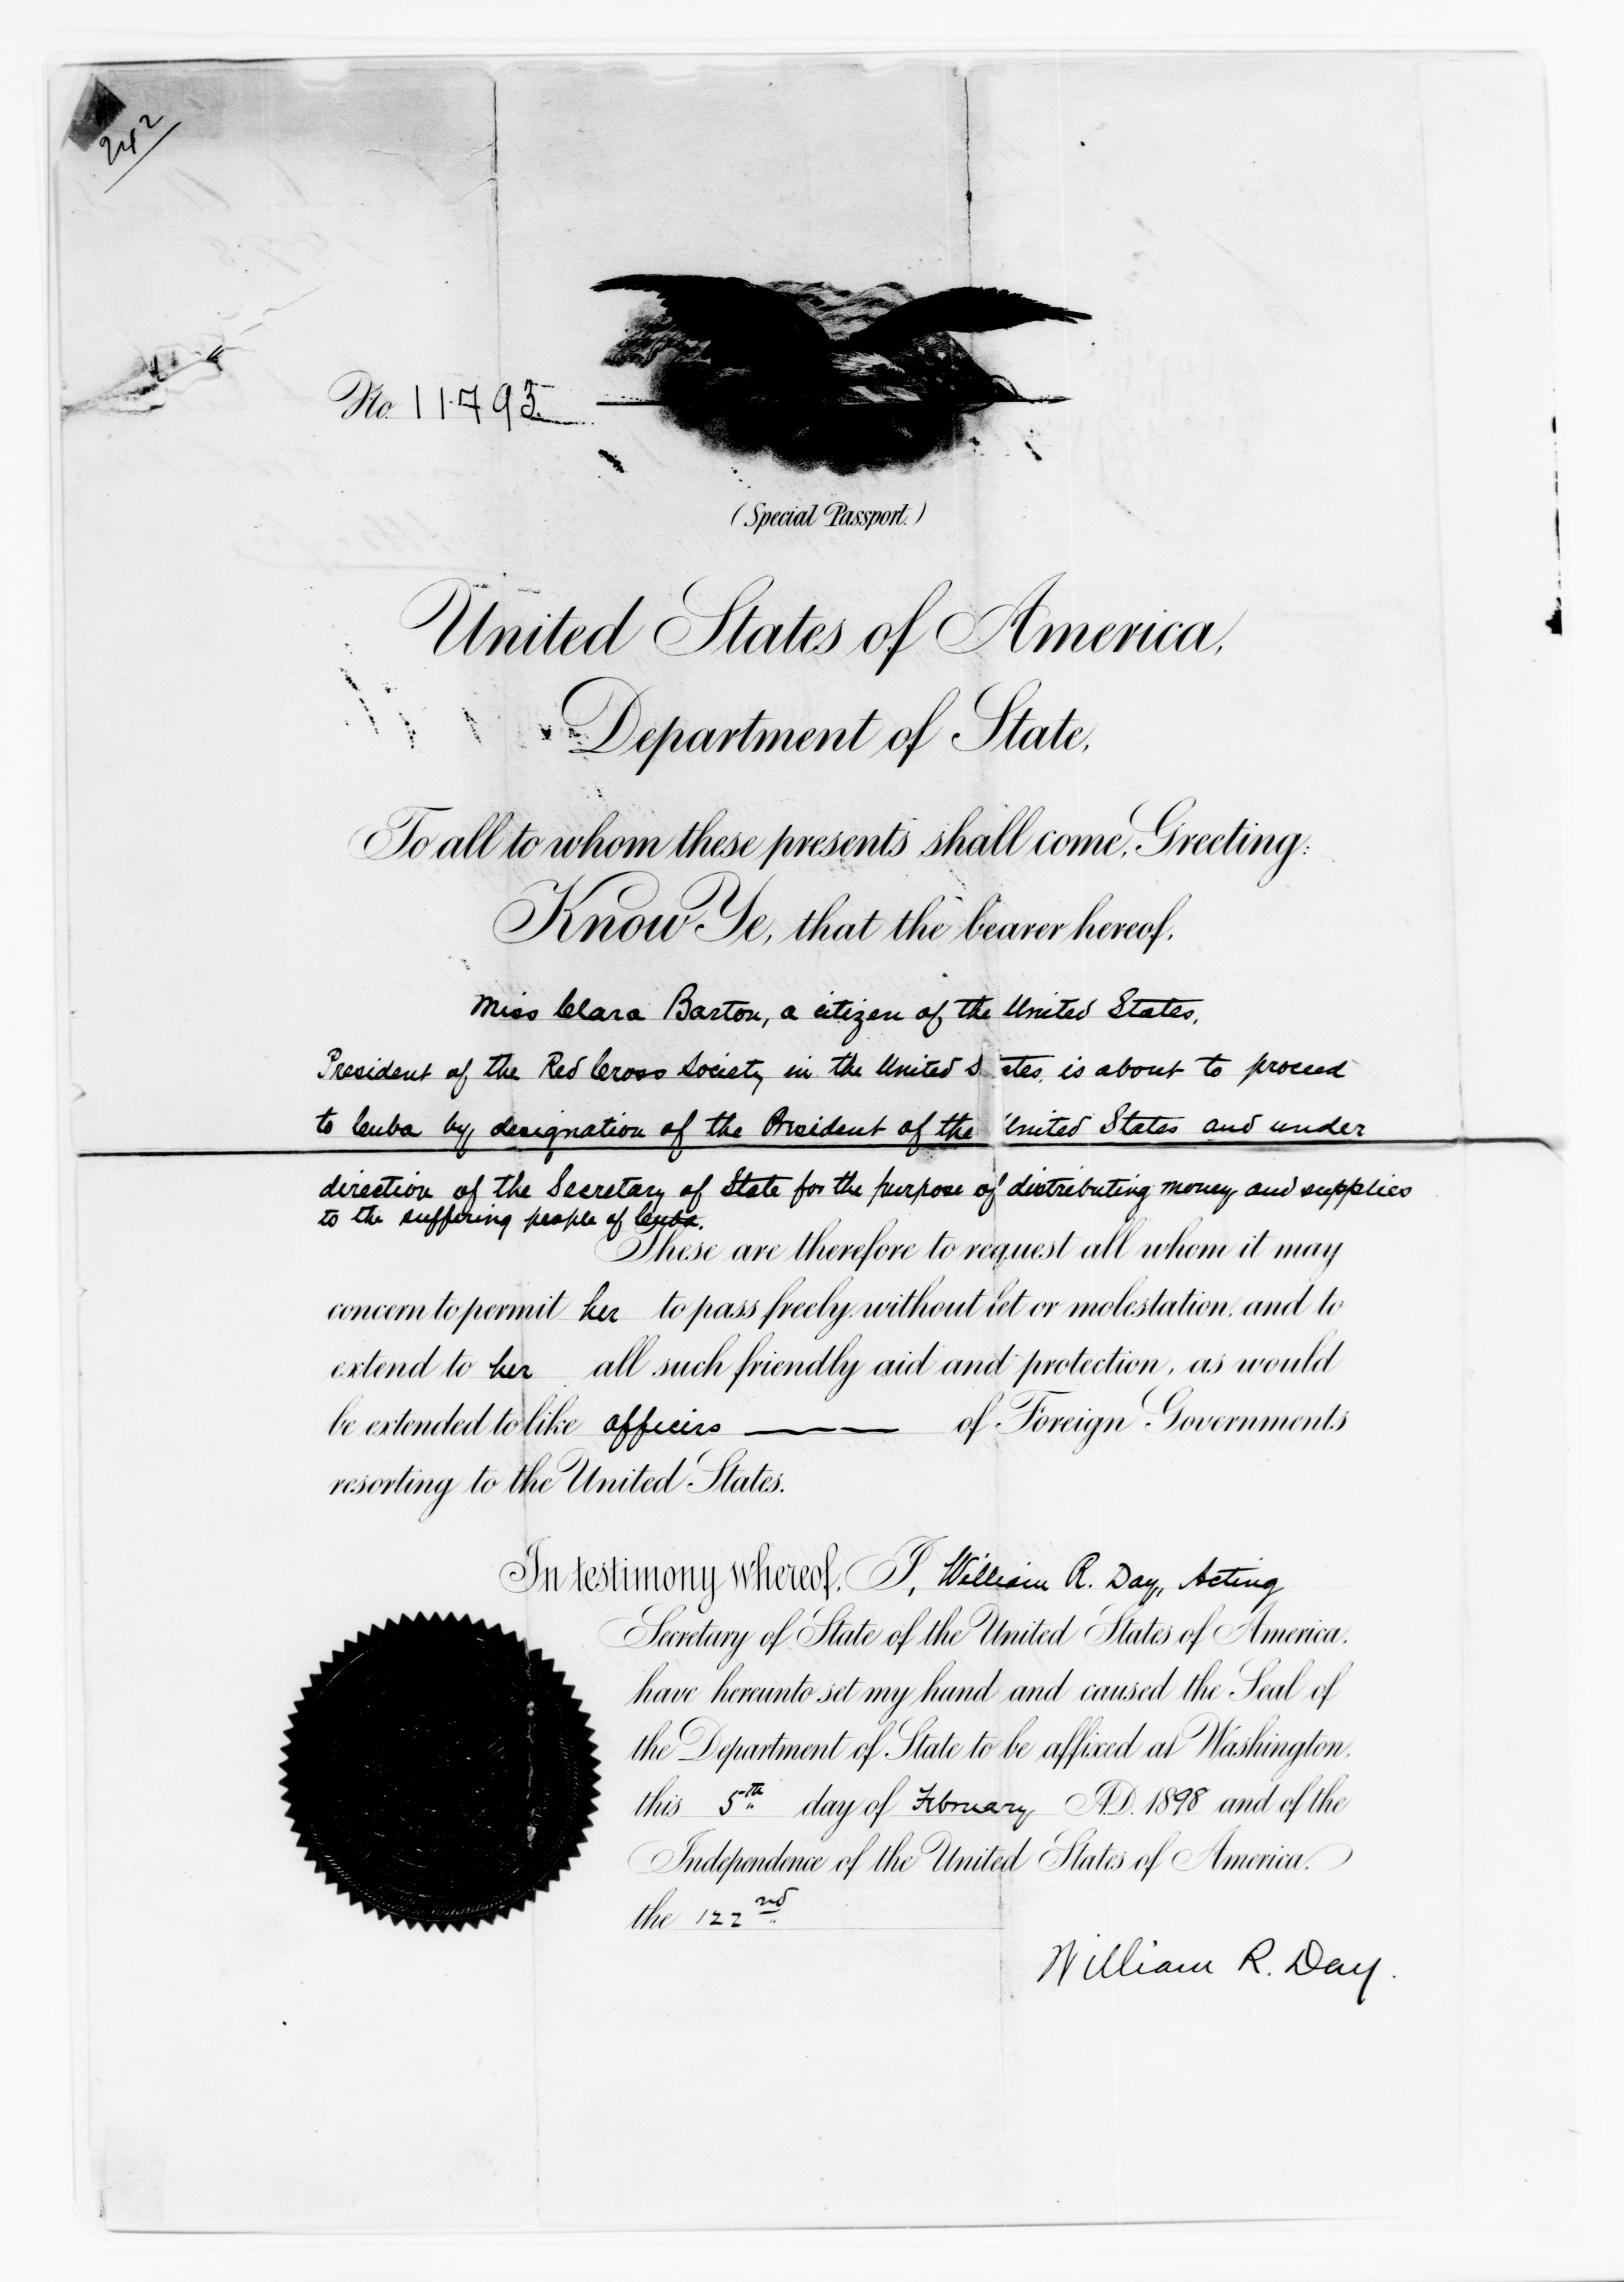 242
No. 11793
(Special Passport.)
United States of America,
Department of State,
To all to whom these presents shall come, Greeting:
Know Ye, that the bearer hereof,
Miss Clara Barton, a citizen of the United States,
President of the Red Cross Society in the United S ates, is about to proceed
to Cuba by designation of the President of the United States and under
direction of the Secretary of State for the purpose of distributing money and supplies
to the suffering people of Cuba.
These are therefore to request all whom it may
concern to permit her to pass freely without let or molestation, and to
extend to her all such friendly aid and protection, as would
be extended to like officers of Foreign Governments
resorting to the United States.
In testimony whereof, I, William R. Day, Acting
Secretary of State of the United States of America,
have hereunto set my hand and caused the Seal of
the Department of State to be affixed at Washington,
this 5th day of February A.D. 1898 and of the
Independence of the United States of America,
the 122nd
William R. Day.